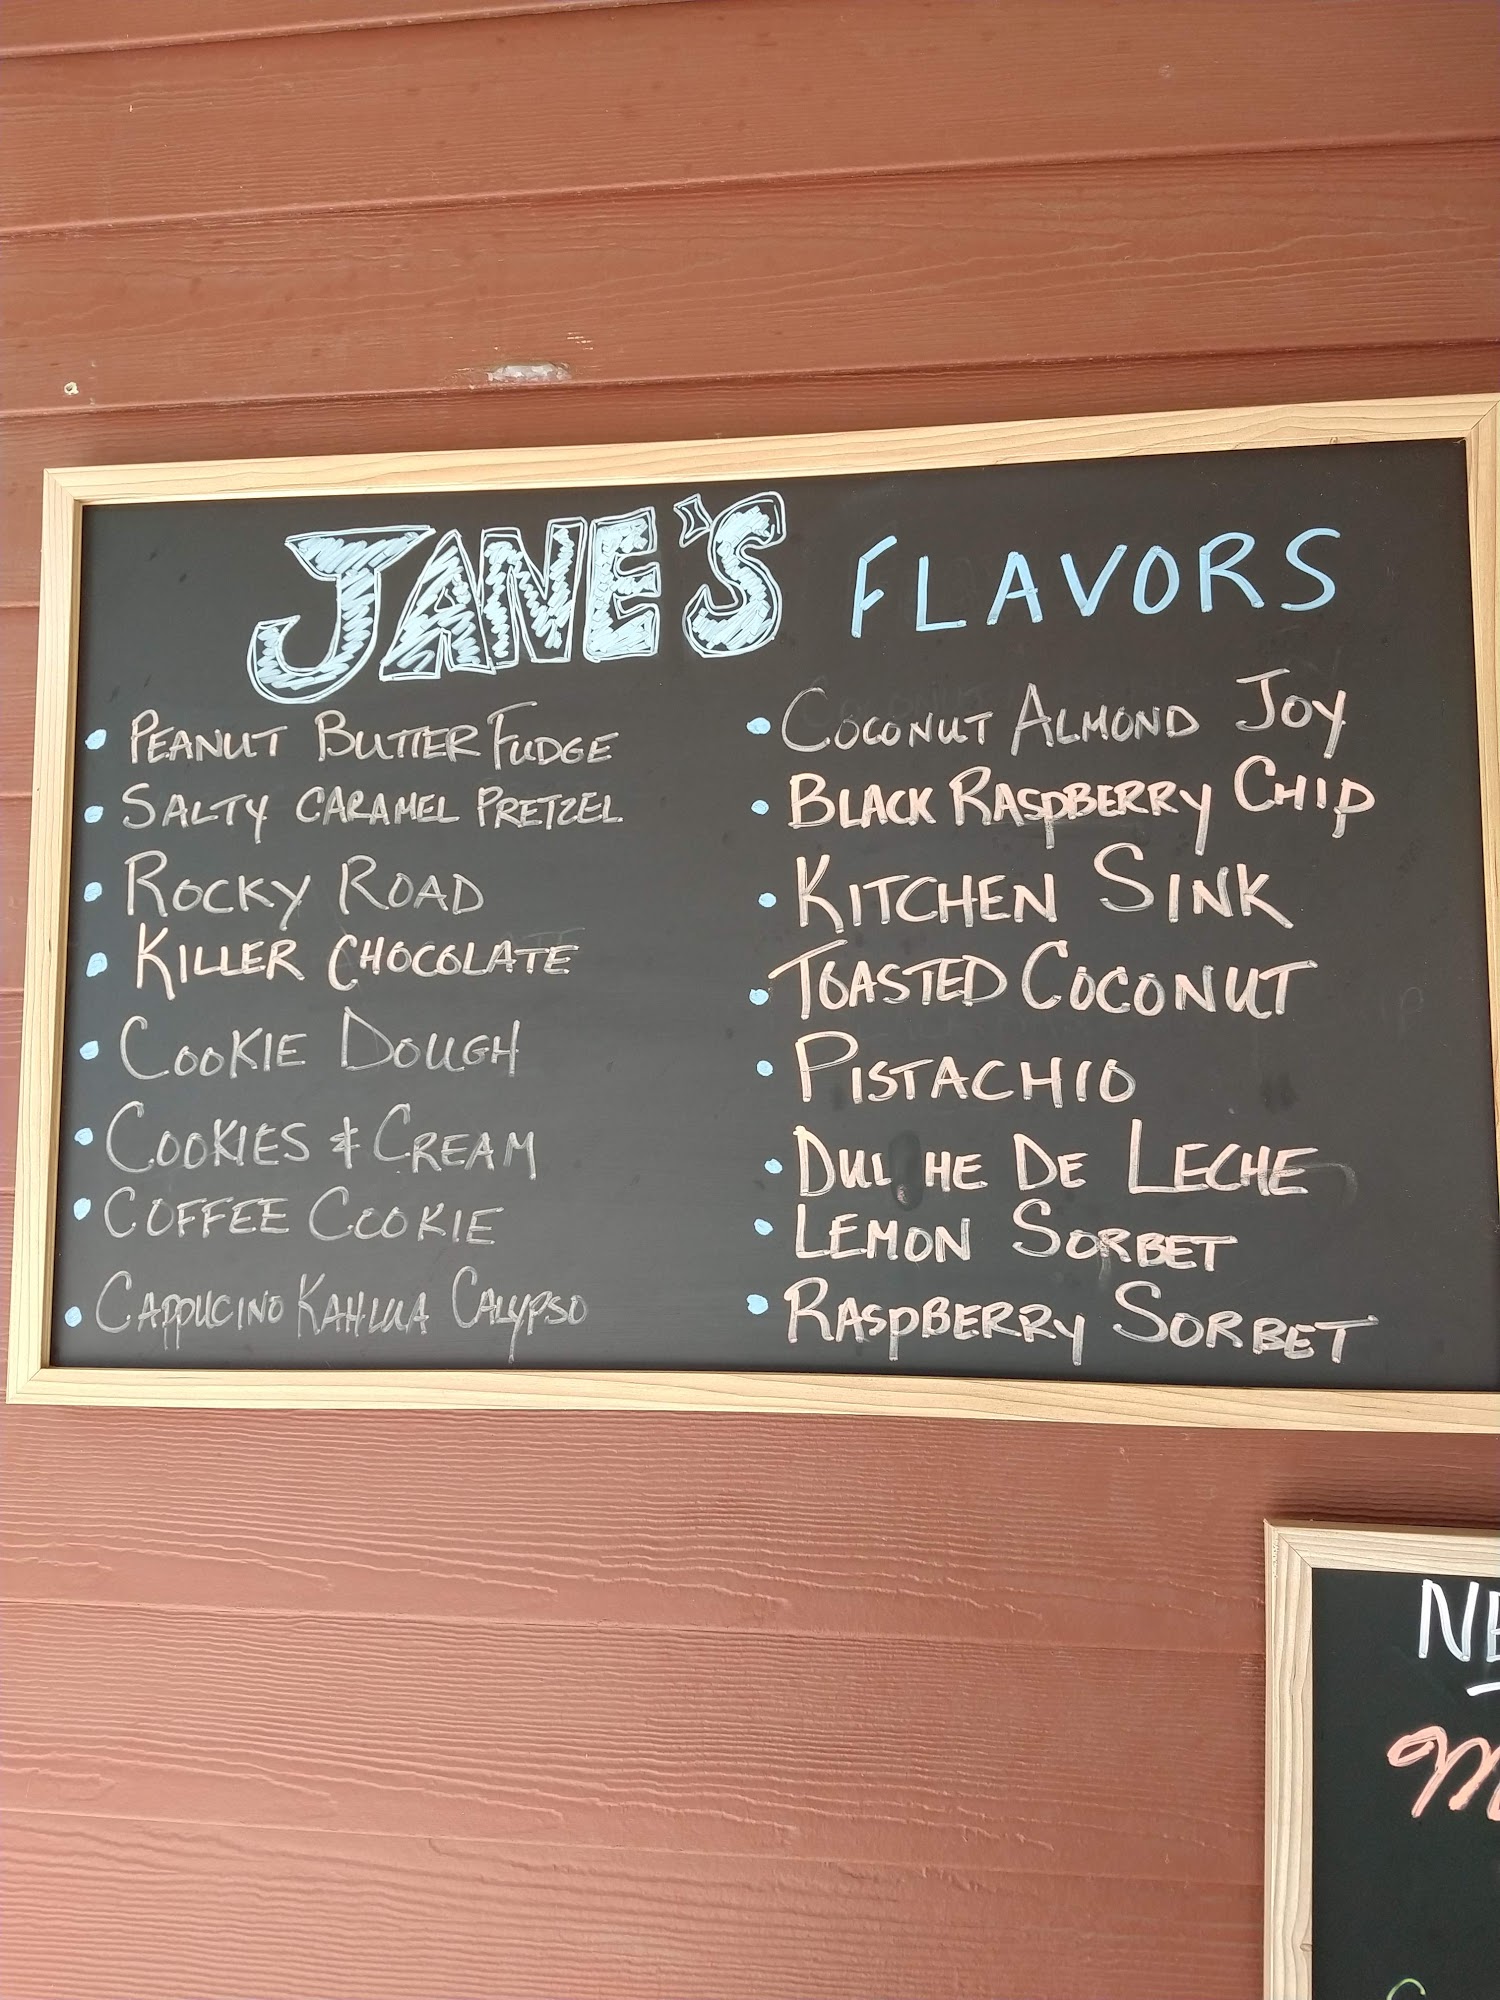 JANE'S FLAVORS
• PEANUT BUTTER FUDGE
• SALTY CARAMEL PRETZEL
• ROCKY ROAD
• KILLER CHOCOLATE
• COOKIE DOUGH
• COOKIES & CREAM
• COFFEE COOKIE
• CAPPUCINO KAHLUA CALYPSO
• COCONUT ALMOND JOY
• BLACK RASPBERRY CHIP
• KITCHEN SINK
• TOASTED COCONUT
• PISTACHIO
• DUL HE DE LECHE
• LEMON SORBET
• RASPBERRY SORBET